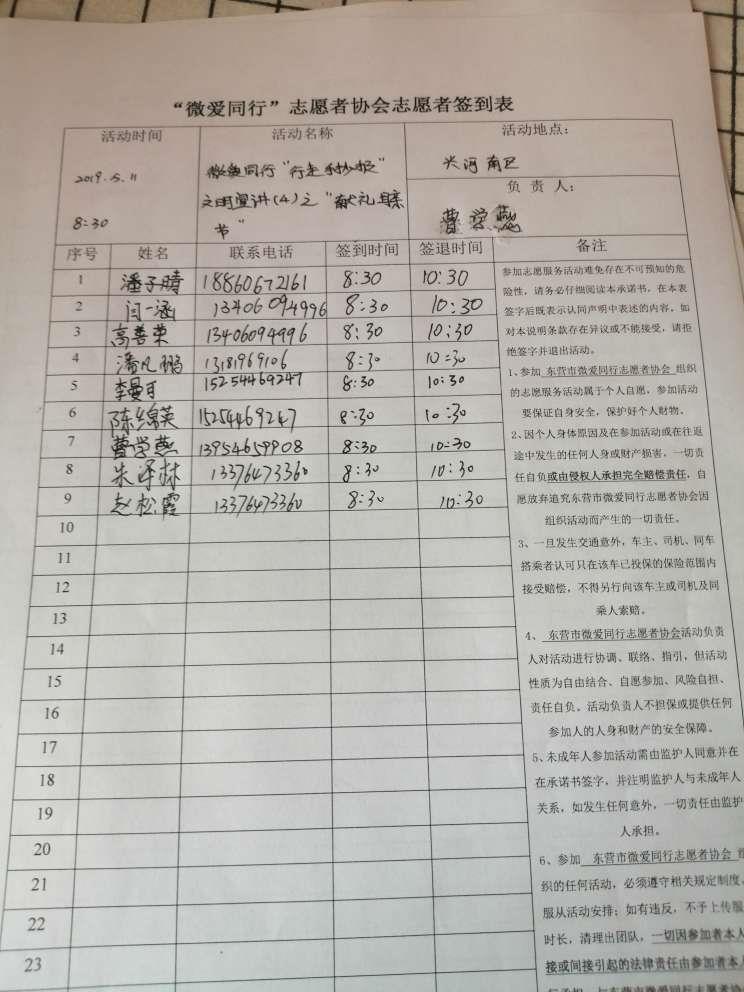 “微爱同行”志愿者协会志愿者签到表
活动时间
2019.5.11
8:30
活动名称
微爱同行“行走
文明宣讲(4)之“献礼母亲
节”
活动地点：
兴河南区
负责人：
曹学燕
序号 姓名 联系电话 签到时间 签退时间 备注
1 潘子晴 18860672161 8:30 10:30
2 闫一涵 13406094996 8:30 10:30
3 高善荣 13406094996 8:30 10:30
4 潘凡鹏 13181969106 8:30 10:30
5 李曼可 15254469247 8:30 10:30
6 陈绵英 15254469247 8:30 10:30
7 曹学燕 13954659908 8:30 10:30
8 朱泽林 13376473360 8:30 10:30
9 赵松霞 13376473360 8:30 10:30
10
11
12
13
14
15
16
17
18
19
20
21
22
23
参加志愿服务活动难免存在不可预知的危
险性，请务必仔细阅读本承诺书，在本表
签字后既表示认同声明中表述的内容，如
对本说明条款存在异议或不能接受，请拒
绝签字并退出活动。
1、参加 东营市微爱同行志愿者协会 组织
的志愿服务活动属于个人自愿，参加活动
要保证自身安全，保护好个人财物。
2、因个人身体原因及在参加活动或在往返
途中发生的任何人身或财产损害，一切责
任自负或由侵权人承担完全赔偿责任，自
愿放弃追究东营市微爱同行志愿者协会因
组织活动而产生的一切责任。
3、一旦发生交通意外，车主、司机、同车
搭乘者认可只在该车已投保的保险范围内
接受赔偿，不得另行向该车主或司机及同
乘人索赔。
4、 东营市微爱同行志愿者协会活动负责
人对活动进行协调、联络、指引，但活动
性质为自由结合、自愿参加、风险自担、
责任自负。活动负责人不担保或提供任何
参加人的人身和财产的安全保障。
5、未成年人参加活动需由监护人同意并在
在承诺书签字，并注明监护人与未成年人
关系，如发生任何意外，一切责任由监护
人承担。
6、参加 东营市微爱同行志愿者协会 组
织的任何活动，必须遵守相关规定制度，
服从活动安排；如有违反，不予上传服
时长，清理出团队，一切因参加者本人
接或间接引起的法律责任由参加者本人
行承担，与东营市微爱同行志愿者协